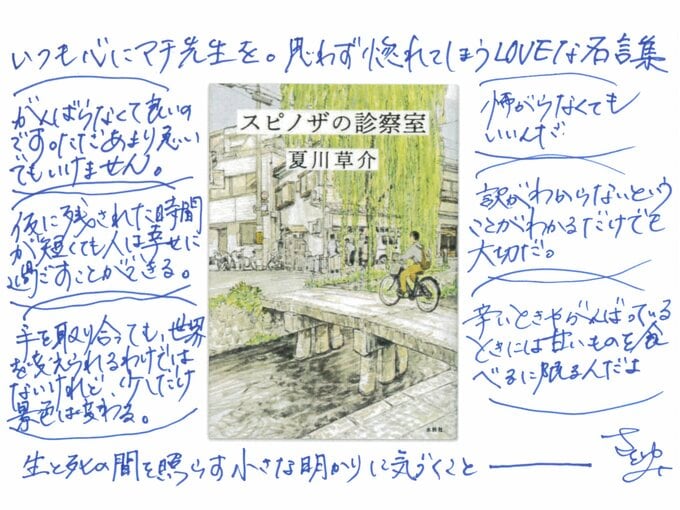 いつも心にマチ先生を。思わず惚れてしまうLOVEな名言集
がんばらなくて良いの
です。ただあまり急い
でもいけません。
仮に残された時間
が短くても人は幸せに
過ごすことができる。
手を取り合っても、世界
を変えられるわけでは
ないけれど、少しだけ
景色は変わる。
スピノザの診察室
夏川草介
水鈴社
怖がらなくても
いいんだ
訳がわからないという
ことがわかるだけでも
大切だ。
辛いときやがんばっている
ときには甘いものを食
べるに限るんだよ
生と死の間を照らす小さな明かりに気づくこと